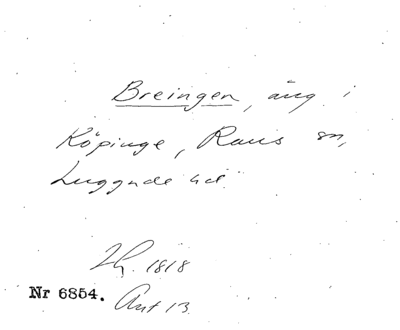 Breingen, äng i
Köpinge, Raus sn,
Luggude hd.
Lh. 1818
Nr 6854. Akt 13